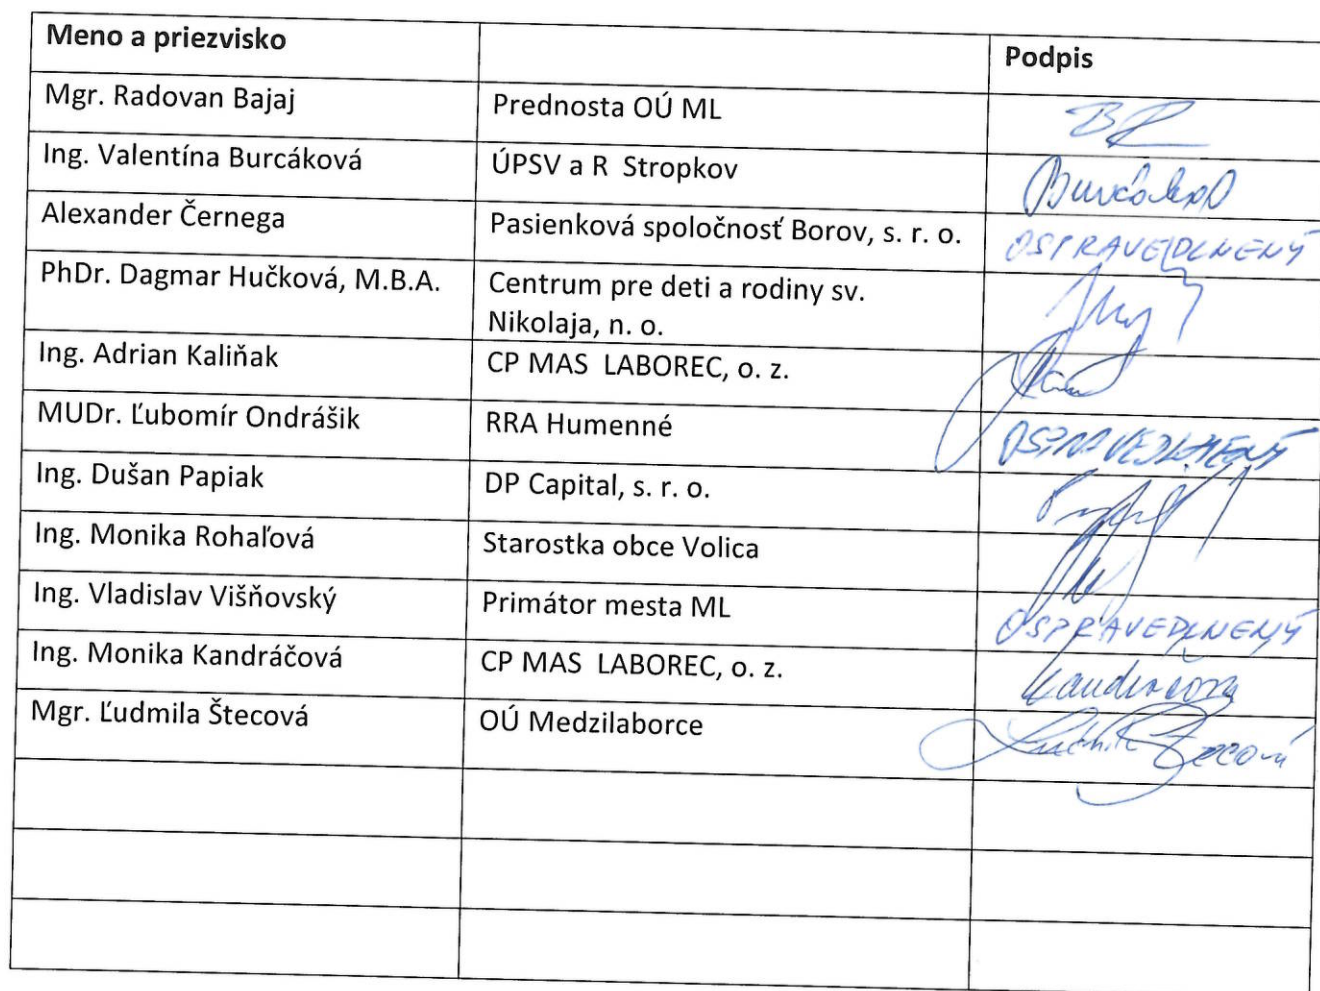 Meno a priezvisko Podpis
Mgr. Radovan Bajaj Prednosta OÚ ML
Ing. Valentína Burcáková ÚPSV a R Stropkov Burcáková
Alexander Černega Pasienková spoločnosť Borov, s. r. o. OSPRAVEDLNENÝ
PhDr. Dagmar Hučková, M.B.A. Centrum pre deti a rodiny sv.
Nikolaja, n. o.
Ing. Adrian Kaliňak CP MAS LABOREC, o. z.
MUDr. Ľubomír Ondrášik RRA Humenné OSPRAVEDLNENÝ
Ing. Dušan Papiak DP Capital, s. r. o.
Ing. Monika Rohaľová Starostka obce Volica
Ing. Vladislav Višňovský Primátor mesta ML OSPRAVEDLNENÝ
Ing. Monika Kandráčová CP MAS LABOREC, o. z. Kandráčová
Mgr. Ľudmila Štecová OÚ Medzilaborce Štecová